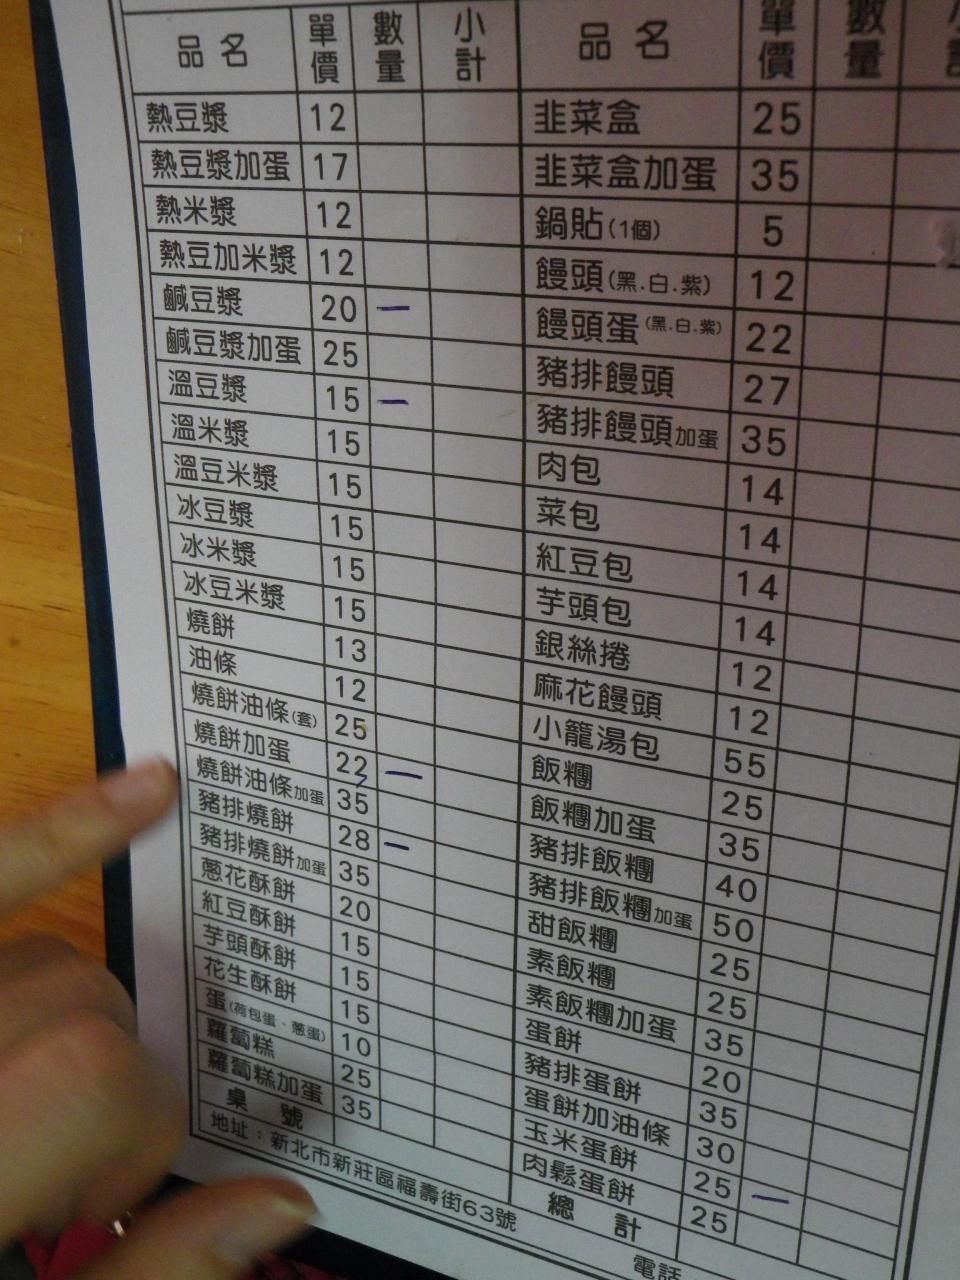 品名 單價 數量 小計
熱豆漿 12
熱豆漿加蛋 17
熱米漿 12
熱豆加米漿 12
鹹豆漿 20 一
鹹豆漿加蛋 25
溫豆漿 15 一
溫米漿 15
溫豆米漿 15
冰豆漿 15
冰米漿 15
冰豆米漿 15
燒餅 13
油條 12
燒餅油條(套) 25
燒餅加蛋 22 一
燒餅油條加蛋 35
豬排燒餅 28 一
豬排燒餅加蛋 35
蔥花酥餅 20
紅豆酥餅 15
芋頭酥餅 15
花生酥餅 15
蛋(荷包蛋、蔥蛋) 10
蘿蔔糕 25
蘿蔔糕加蛋 35
桌號
品名 單價 數量 小
韭菜盒 25
韭菜盒加蛋 35
鍋貼(1個) 5
饅頭(黑.白.紫) 12
饅頭蛋(黑.白.紫) 22
豬排饅頭 27
豬排饅頭加蛋 35
肉包 14
菜包 14
紅豆包 14
芋頭包 14
銀絲捲 12
麻花饅頭 12
小籠湯包 55
飯糰 25
飯糰加蛋 35
豬排飯糰 40
豬排飯糰加蛋 50
甜飯糰 25
素飯糰 25
素飯糰加蛋 35
蛋餅 20
豬排蛋餅 35
蛋餅加油條 30
玉米蛋餅 25 一
肉鬆蛋餅 25
總計
地址：新北市新莊區福壽街63號
電話